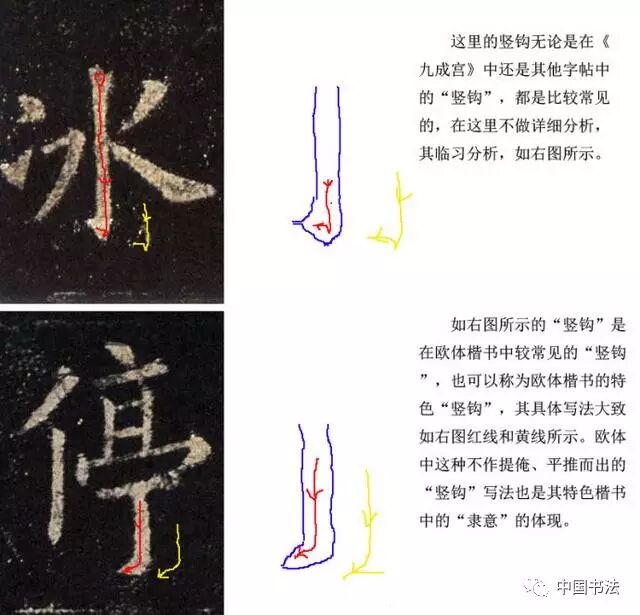 冰
这里的竖钩无论是在《
九成宫》中还是其他字帖中
的“竖钩”，都是比较常见
的，在这里不做详细分析，
其临习分析，如右图所示。
停
如右图所示的“竖钩”是
在欧体楷书中较常见的“竖钩
”，也可以称为欧体楷书的特
色“竖钩”，其具体写法大致
如右图红线和黄线所示。欧体
中这种不作提俺、平推而出的
“竖钩”写法也是其特色楷书
中的“隶意”的体现。
中国书法